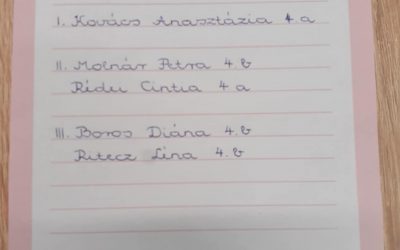 I. Kovács Anasztázia 4. a
II. Molnár Petra 4. b
Rédei Cintia 4. a
III. Boros Diána 4. b
Ritecz Lina 4. b